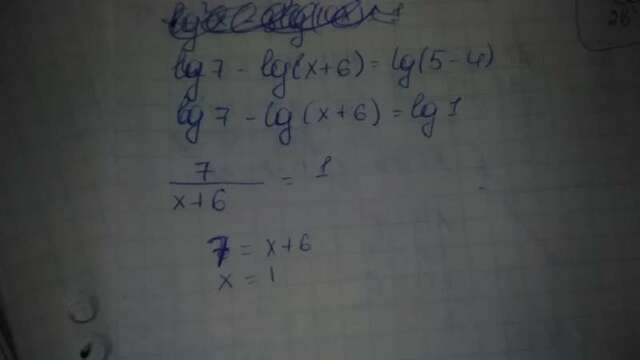 lg 7 - lg(x+6) = lg(5-4)
lg 7 - lg(x+6) = lg 1
7
/
x+6 = 1
7 = x+6
x = 1